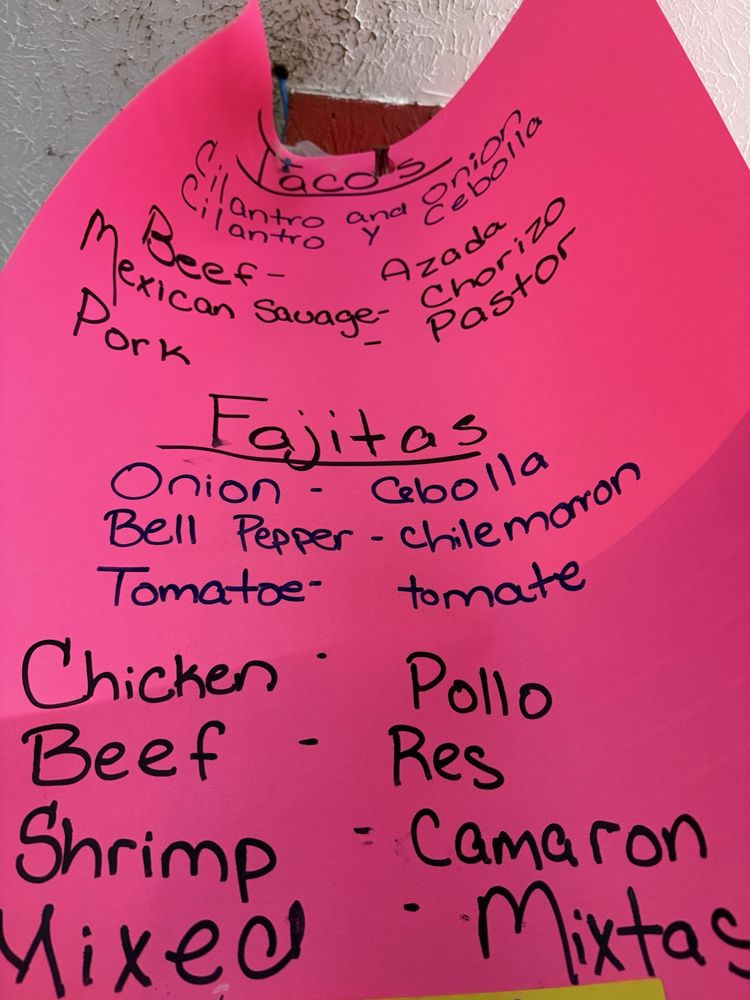 Tacos
Cilantro and onion
Cilantro y Cebolla
Beef- Azada
Mexican Sauage- Chorizo
Pork - Pastor
Fajitas
Onion - Cebolla
Bell Pepper - chilemorron
Tomatoe- tomate
Chicken - Pollo
Beef - Res
Shrimp - Camaron
Mixed - Mixtas